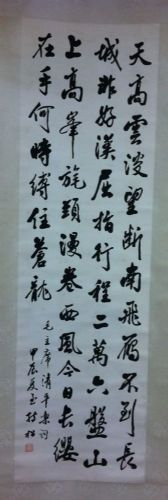 天高雲淡望斷南飛雁不到長
城非好漢屈指行程二萬六盤山
上高峯旄頭漫卷西風今日長纓
在手何時縛住蒼龍
毛主席清平樂詞
甲辰夏玉